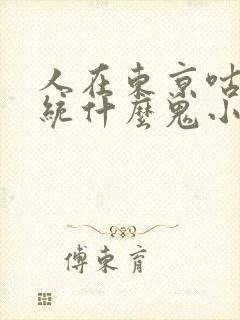 人在東京咕
統什麼鬼小
傅東育